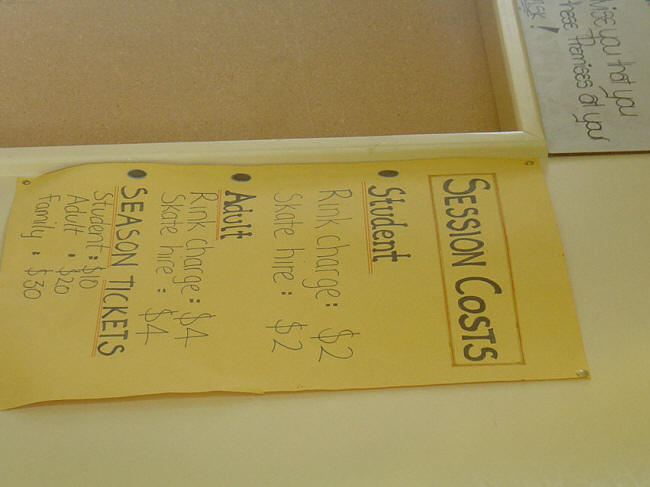 SESSION COSTS
Student
Rink charge: $2
Skate hire: $2
Adult
Rink charge: $4
Skate hire: $4
SEASON TICKETS
Student: $10
Adult: $20
Family: $30
vise you that you
these Premises at your
RISK!